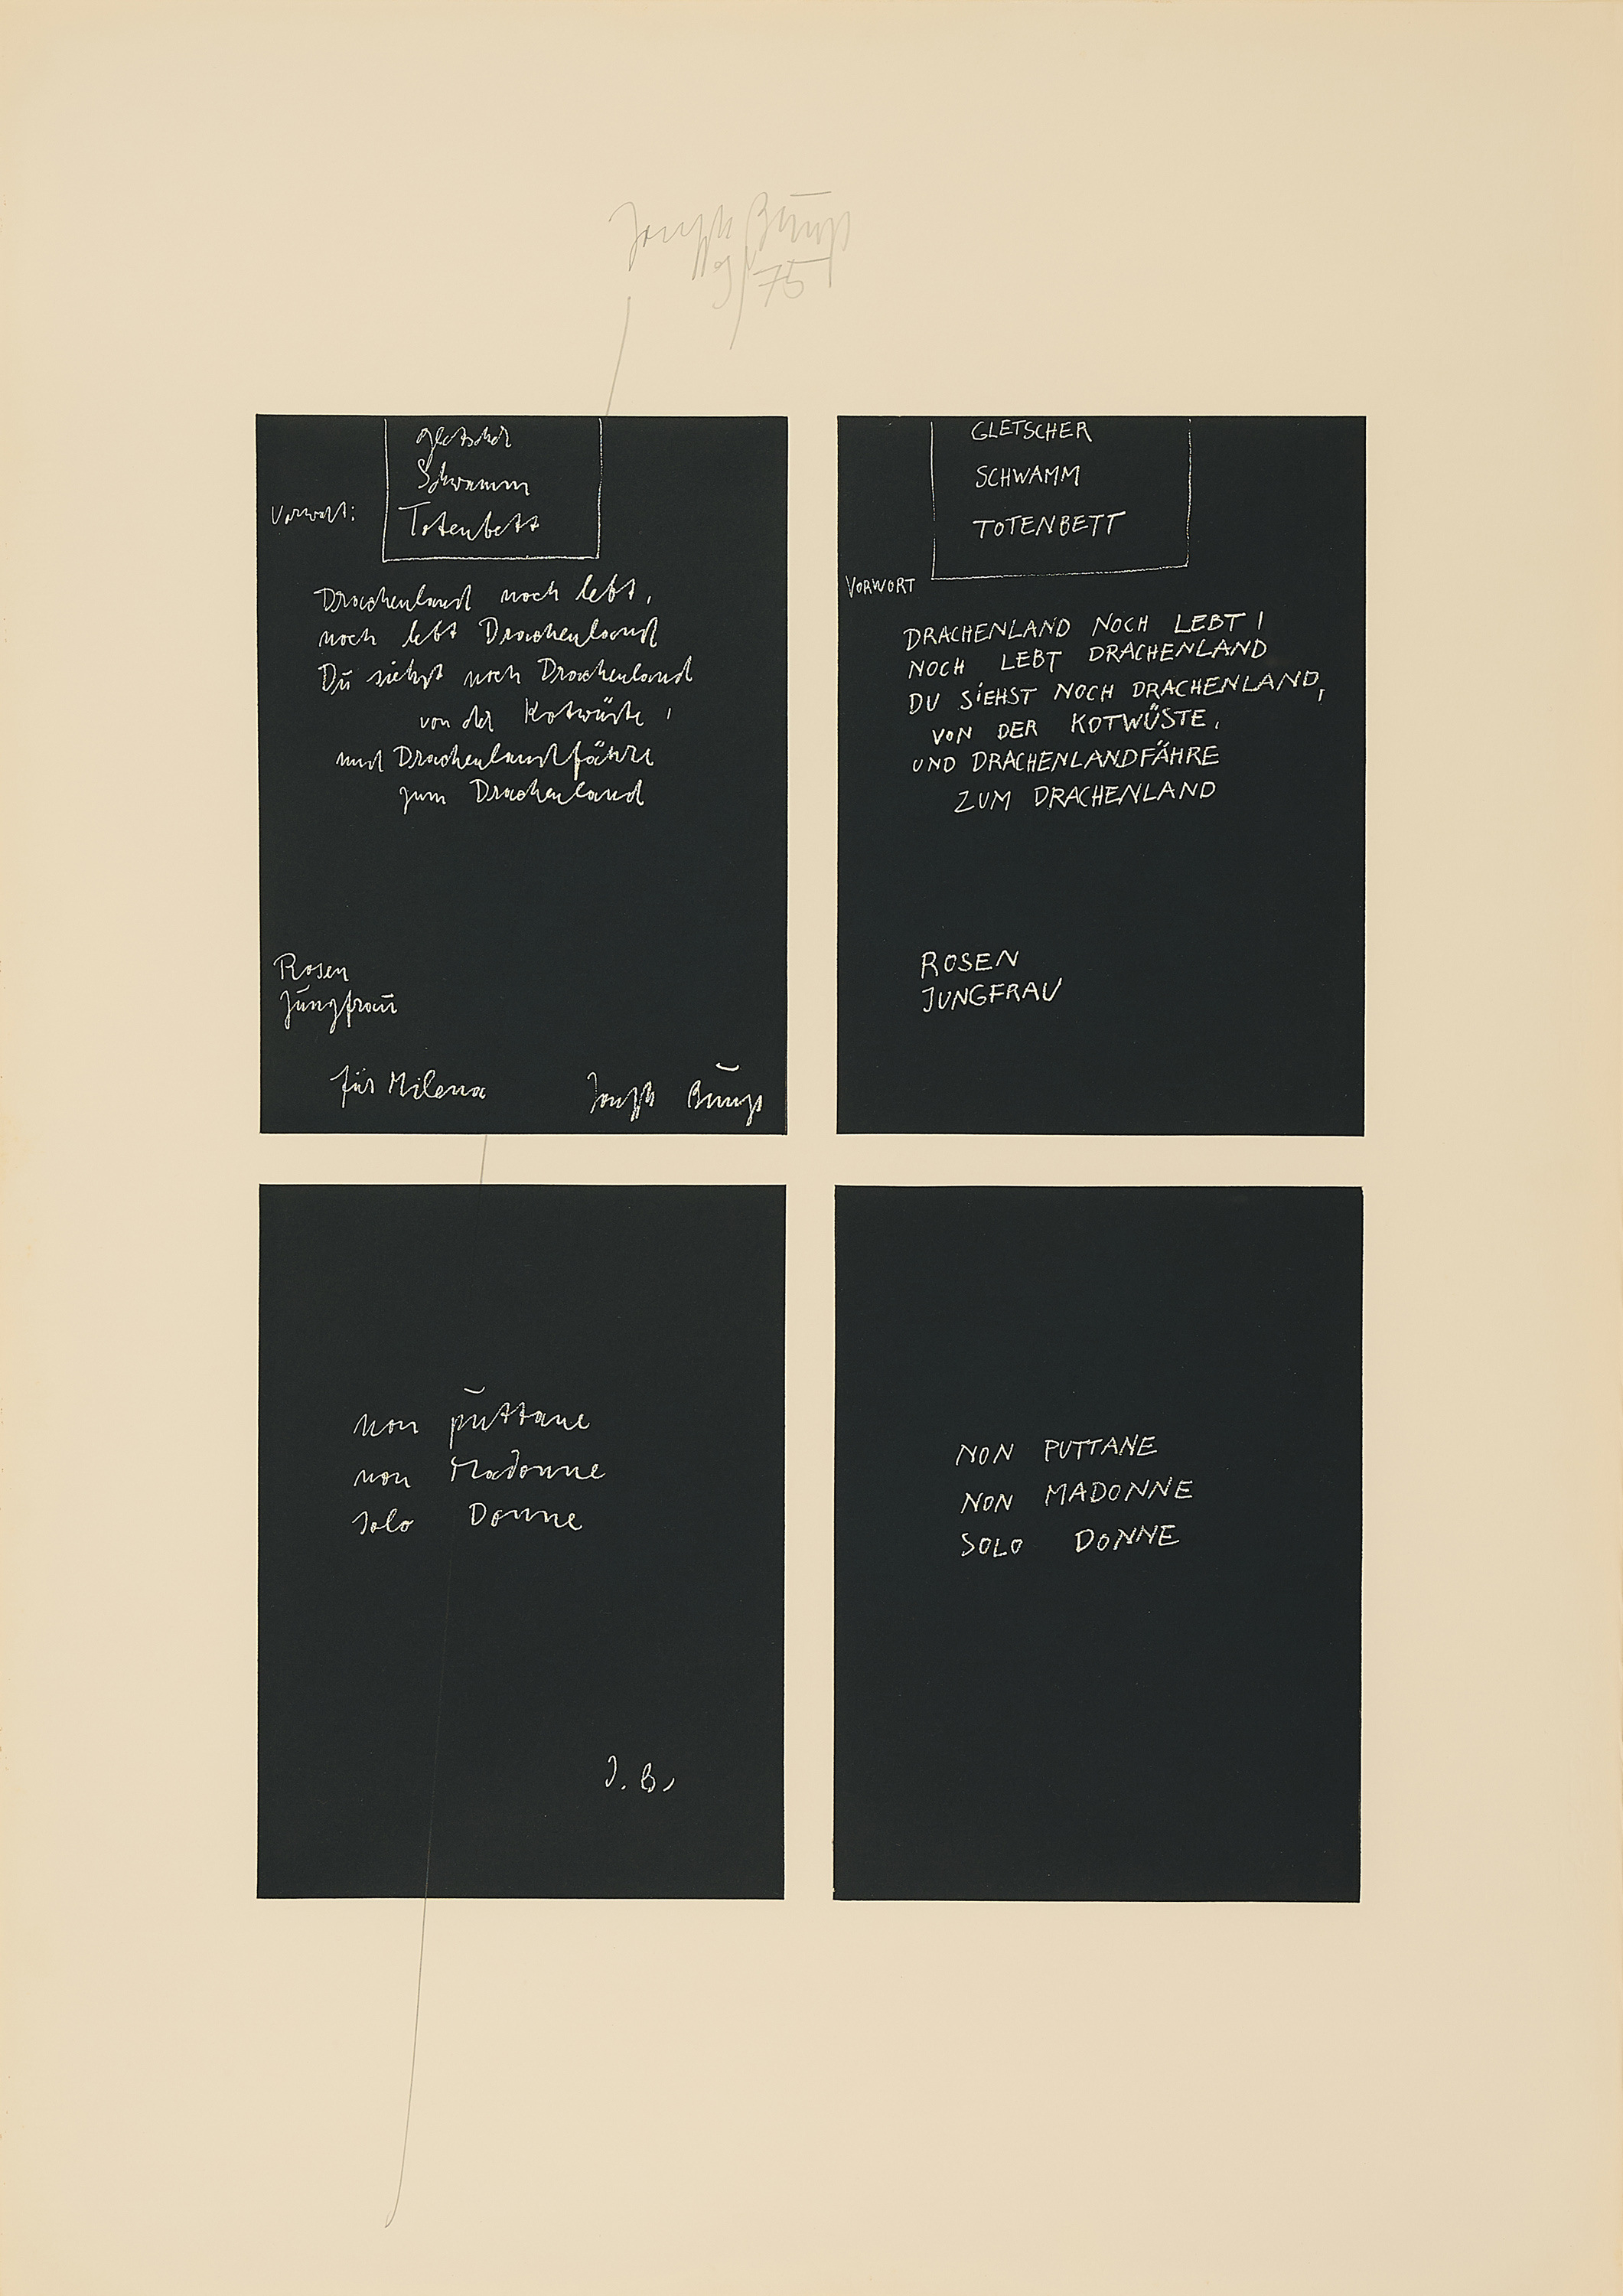 Joseph Beuys
9/75
Gletscher
Schwamm
Vorwort: Totenbett
Drachenland noch lebt,
noch lebt Drachenland
Dū siehst noch Drachenland
von der Kotwüste,
und Drachenlandfähre
zum Drachenland
Rosen
Jūngfraū
für Milena
Joseph Beūys
GLETSCHER
SCHWAMM
TOTENBETT
VORWORT
DRACHENLAND NOCH LEBT,
NOCH LEBT DRACHENLAND
DU SIEHST NOCH DRACHENLAND,
VON DER KOTWÜSTE,
UND DRACHENLANDFÄHRE
ZUM DRACHENLAND
ROSEN
JUNGFRAU
non pūttane
non Madonne
solo Donne
J. B.
NON PUTTANE
NON MADONNE
SOLO DONNE